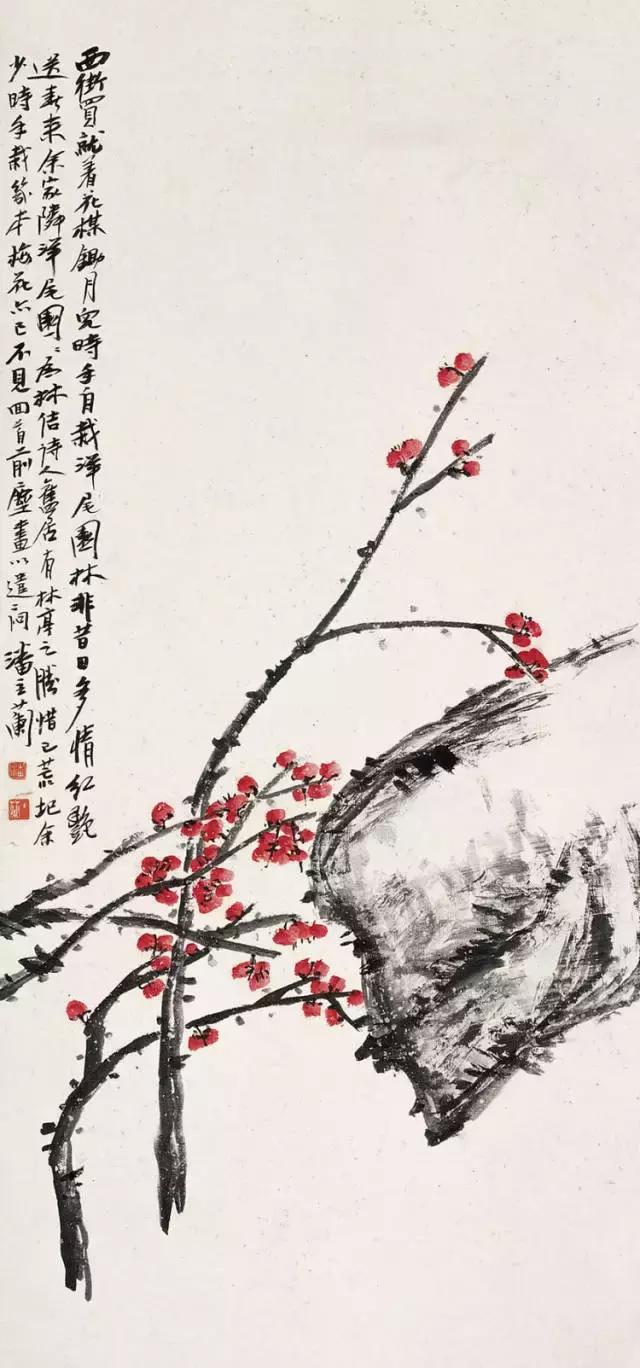 西街買就着花楳鋤月兒時手自栽洋尾園林非昔日多情紅艷
送春来余家隣洋尾園〻為林佶詩人舊居有林亭之勝惜已荒圮余
少時手栽幾本梅花亦已不見回首前塵畫以遣 潘主蘭